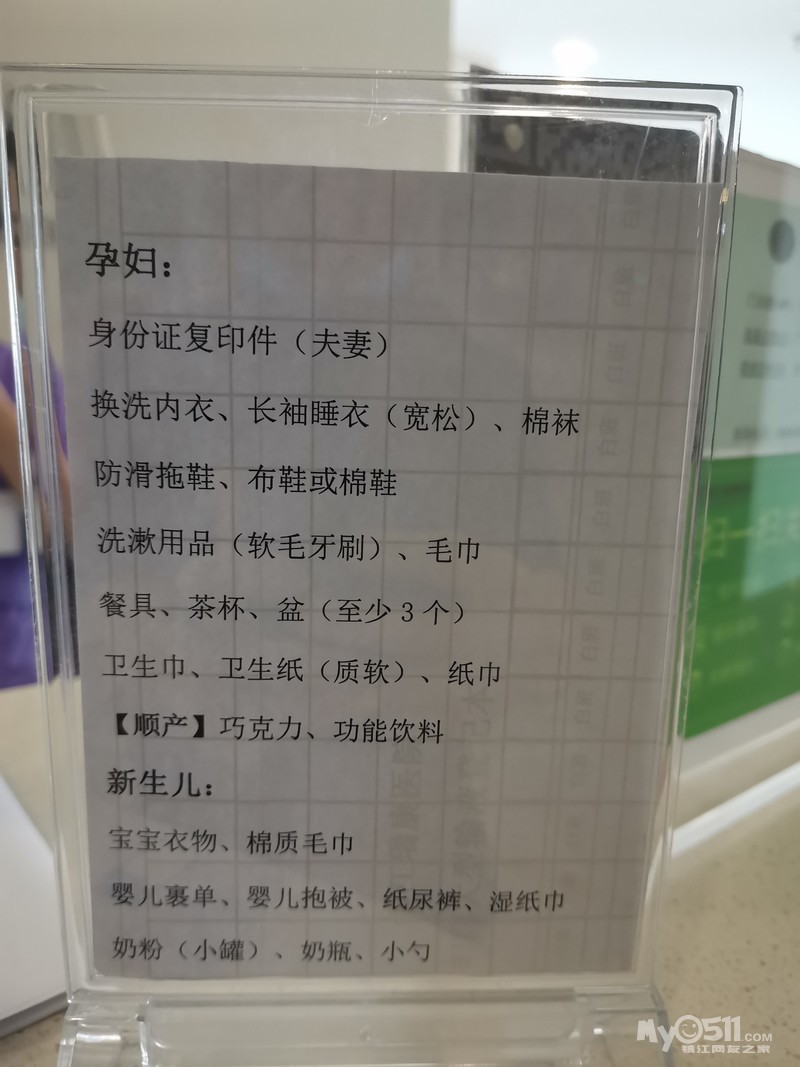 孕妇：
身份证复印件（夫妻）
换洗内衣、长袖睡衣（宽松）、棉袜
防滑拖鞋、布鞋或棉鞋
洗漱用品（软毛牙刷）、毛巾
餐具、茶杯、盆（至少3个）
卫生巾、卫生纸（质软）、纸巾
【顺产】巧克力、功能饮料
新生儿：
宝宝衣物、棉质毛巾
婴儿裹单、婴儿抱被、纸尿裤、湿纸巾
奶粉（小罐）、奶瓶、小勺
My0511.COM
镇江网友之家